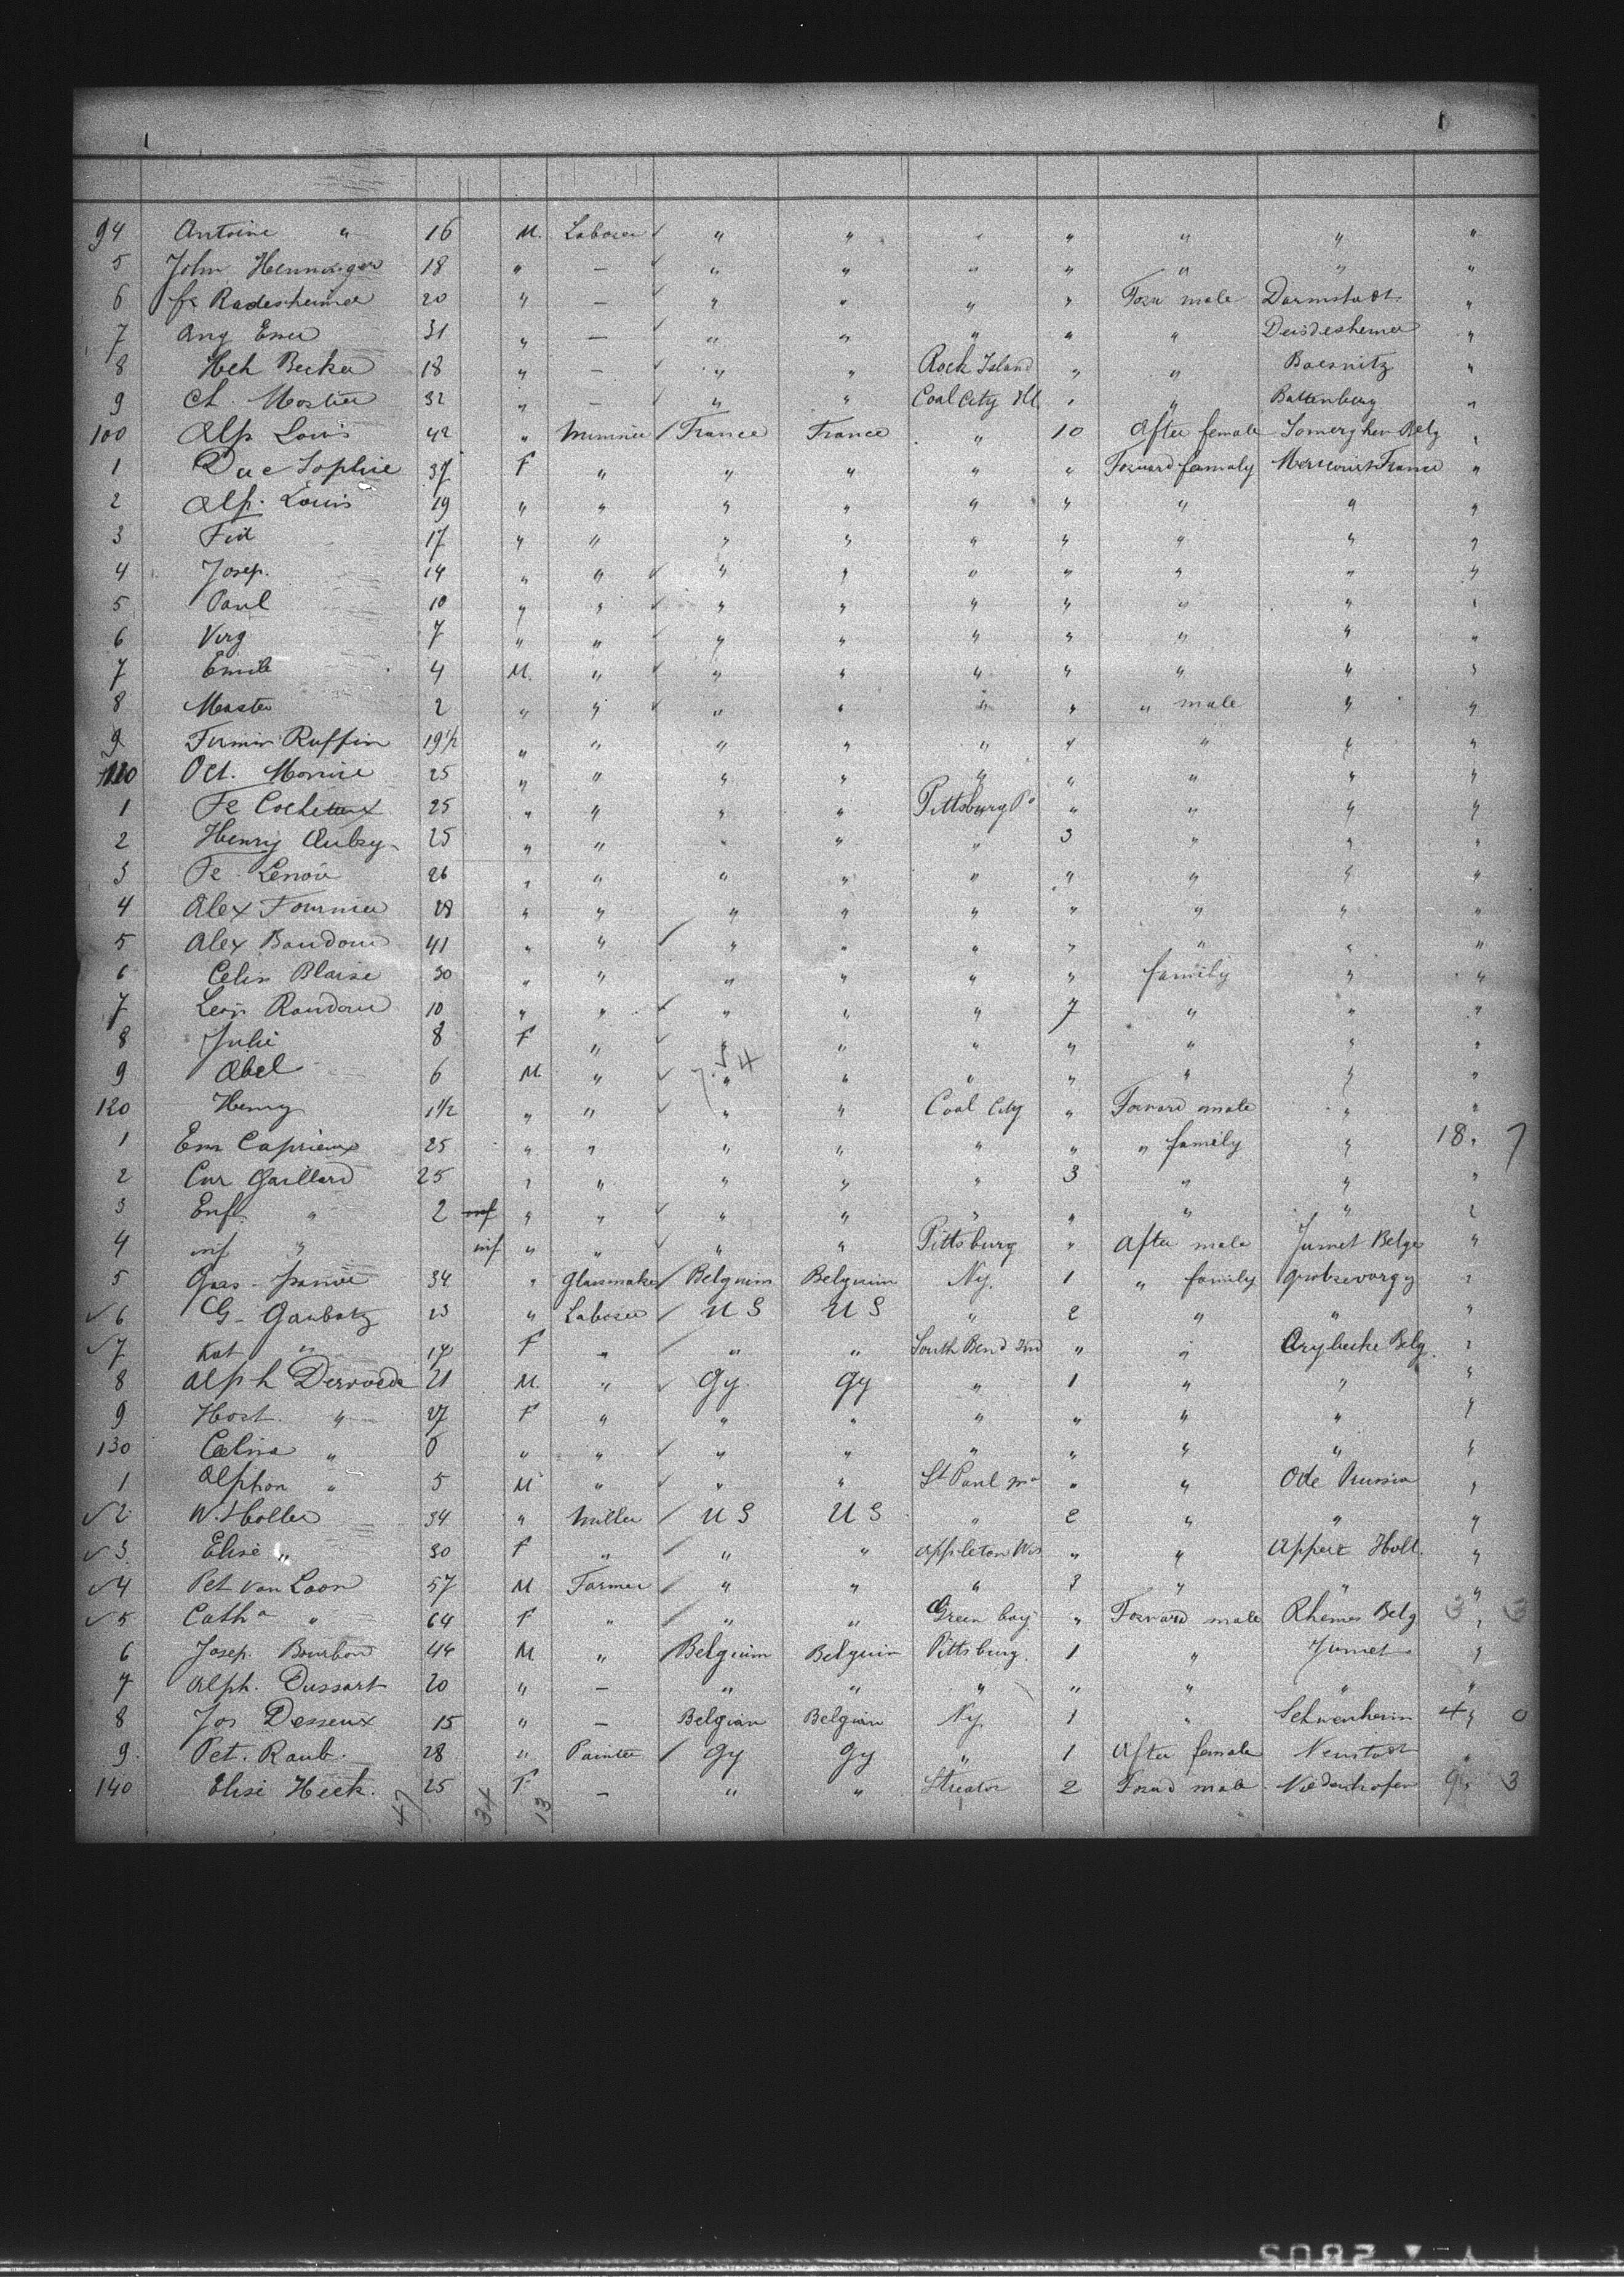 94 Antoine " 16 M. Laborer " " " " " " "
5 John Henninger 18 " — " " " " " " "
6 fr Radesheimer 20 " — " " " " Forw male Darmstadt "
7 Aug Emer 31 " — " " " " " Deidesheimer "
8 Hch Becker 18 " — " " Rock Island " " Baesnitz "
9 Ch. Mostier 32 " — " " Coal City Ill. " " Battenberg "
100 Alp Louis 42 " Miner France France " 10 After female Somerghen Belg "
1 Duc Sophie 37 F " " " " " Forward family France "
2 Alp. Louis 19 " " " " " " " " "
3 Fid 17 " " " " " " " " "
4 Josep. 14 " " " " " " " " "
5 Paul 10 " " " " " " " " "
6 Virg 7 " " " " " " " " "
7 Emile 4 M. " " " " " " " "
8 Master 2 " " " " " " " male " "
9 Firmin Ruffin 19 1/2 " " " " " " " " "
110 Oct. 25 " " " " " " " " "
1 Fr 25 " " " " Pittsburg Pa " " " "
2 Henry Aubry 25 " " " " " 3 " " "
3 Fr. Lenoir 26 " " " " " " " " "
4 Alex Fournier 28 " " " " " " " " "
5 Alex Baudoin 41 " " " " " " " " "
6 Celin Blaise 30 " " " " " " family " "
7 Leon 10 " " " " " 7 " " "
8 Julie 8 F " " " " " " " "
9 Abel 6 M. " " " " " " " "
120 Henry 1 1/2 " " " " Coal City " Forward male " "
1 Em Caprieux 25 " " " " " " " family " 18. 7
2 Cur Gaillard 25 " " " " " 3 " " "
3 Enf. " 2 inf " " " " " " " " "
4 inf " inf " " " " Pittsburg " After male Jumet Belge "
5 Gras 34 " Glassmaker Belgium Belgium Ny. 1 " family "
6 G. Gaubatz 23 " Laborer U S U S " 2 " " "
7 Kat " 17 F " " " South Bend Ind " " Belg. "
8 Alph 21 M. " Gy. Gy " 1 " " "
9 Hort. " 27 F " " " " " " " "
130 Celina " 6 " " " " " " " " "
1 Alphon " 5 M " " " St Paul " " Prussia "
2 W. Holler 34 " Miller U S U S " 2 " " "
3 Elise " 30 F " " " Appleton Wis " " Holl. "
4 Pet van Loon 57 M Farmer " " " 3 " " "
5 Cath a " 64 F " " " Green bay " Forward male Belg 3 "
6 Josep. Bourbon 44 M " Belgium Belgium Pittsburg. 1 " Jumet "
7 Alph. Dussart 20 " — " " " " " " "
8 Jos Desseux 15 " — Belgian Belgian Ny. 1 " Schwenheim 4 " 0
9. Pet. Raub. 28 " Painter Gy Gy " 1 After female Neustadt "
140 Elise Heck. 25 F — " " Streator 2 Forwd male Niedenhofen 9 " 3
47 34 13